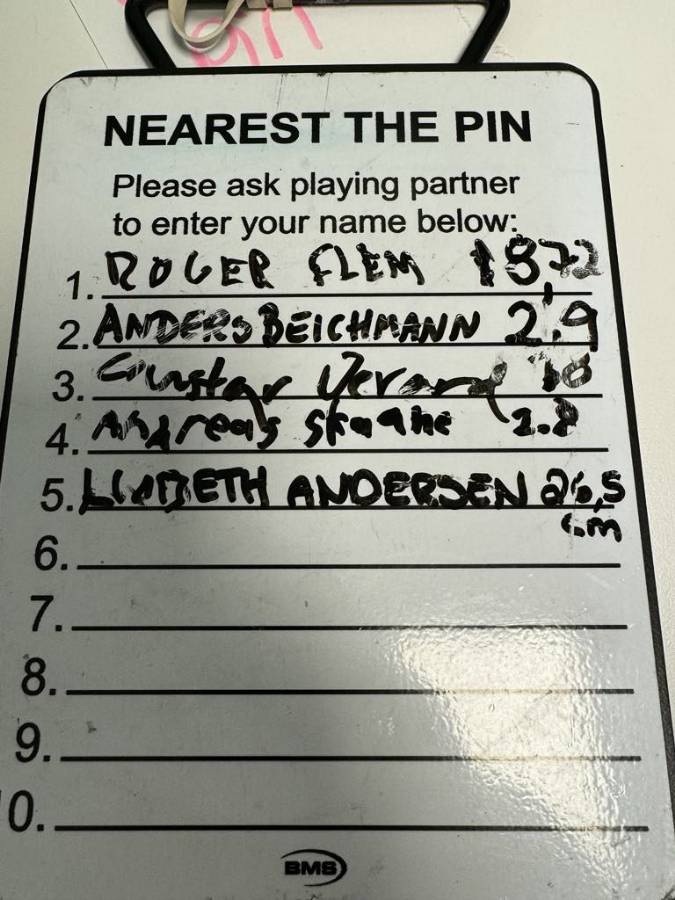 NEAREST THE PIN
Please ask playing partner
to enter your name below:
1. ROGER FLEM
2. ANDERS BEICHMANN 2.9
3. Gustav
4. Andreas
5. ANDERSEN 26,5
cm
6.
7.
8.
9.
0.
BMS